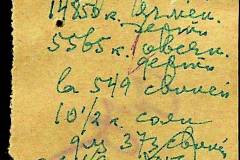 14850 к. ячмен.
зерна
5565 к. овсян.
зерна
за 549 свиней
10 1/2 к. соли
для 373 свиней